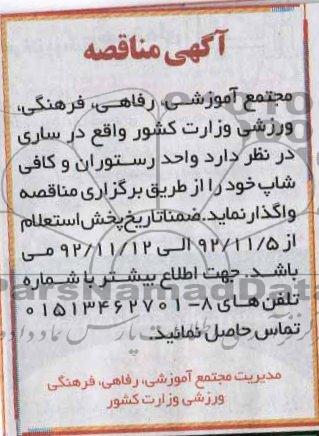 آگهی مناقصه
مجتمع آموزشی، رفاهی، فرهنگی،
ورزشی وزارت کشور واقع در ساری
در نظر دارد واحد رستوران و کافی
شاپ خود را از طریق برگزاری مناقصه
واگذار نماید. ضمنا تاریخ پخش استعلام
از ۹۲/۱۱/۵ الی ۹۲/۱۱/۱۲ می
باشد. جهت اطلاع بیشتر با شماره
تلفن های ۸-۰۱۵۱۳۴۶۲۷۰۱
تماس حاصل نمائید.
مدیریت مجتمع آموزشی، رفاهی، فرهنگی
ورزشی وزارت کشور